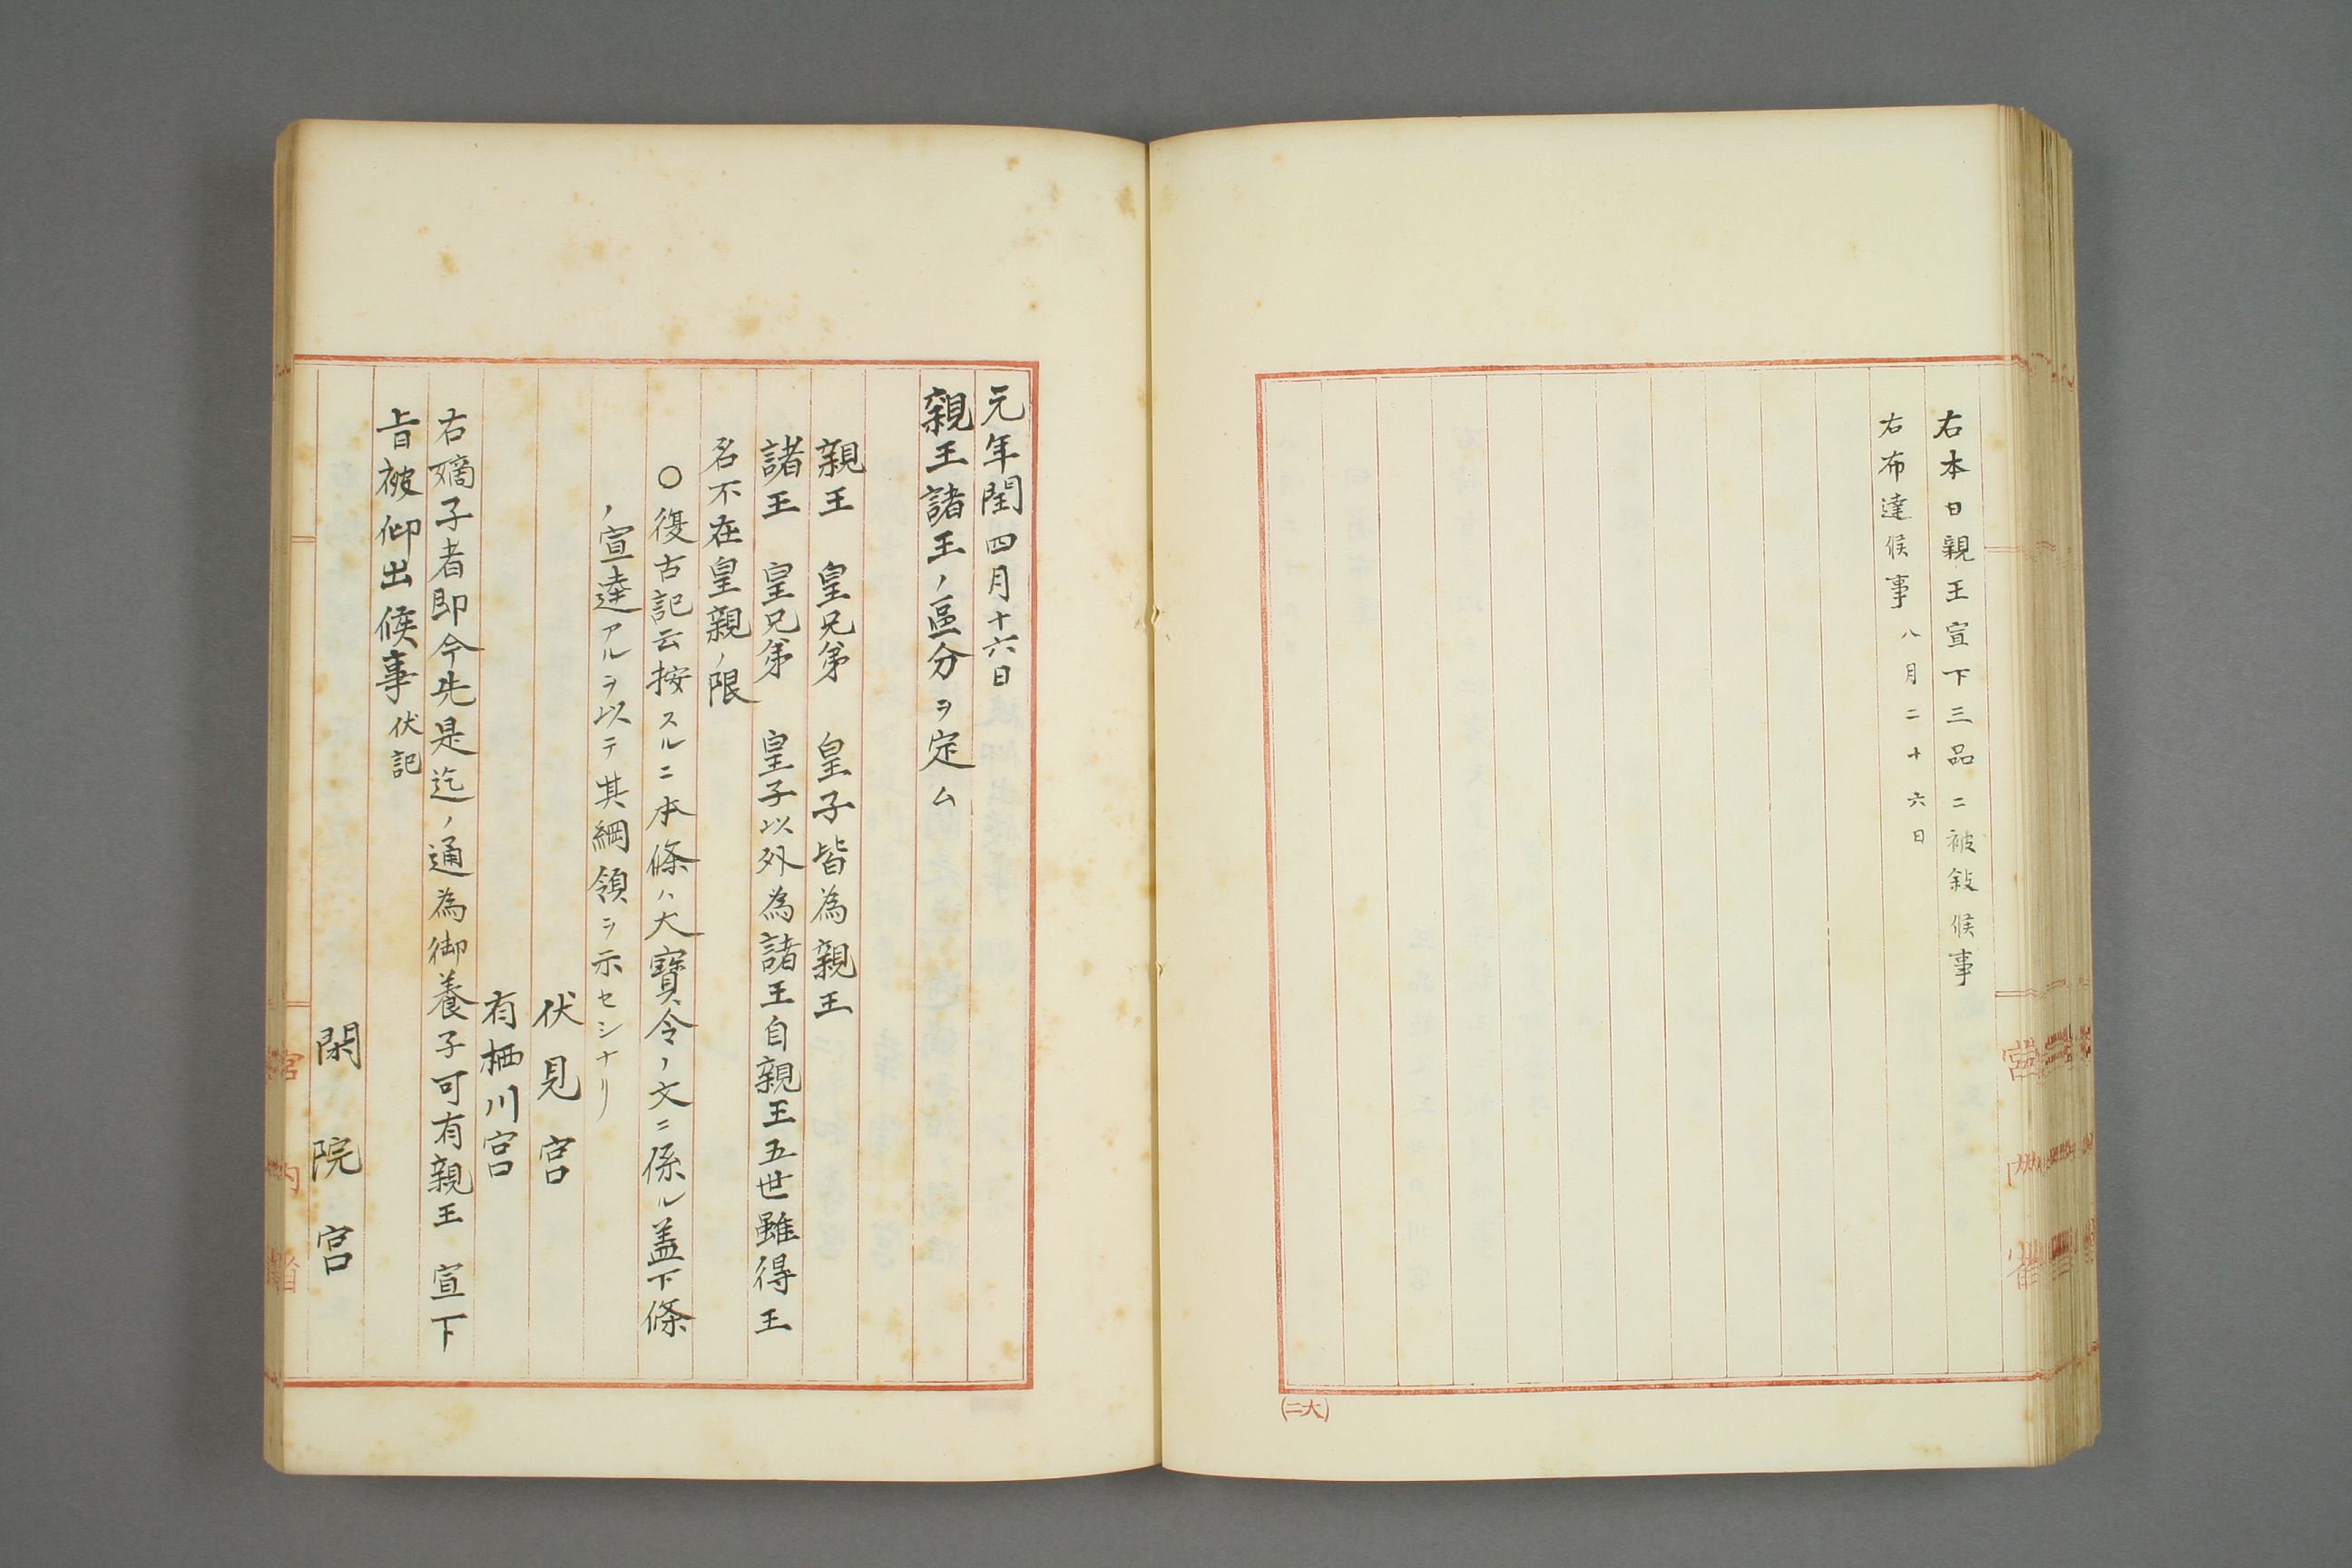 右本日親王宣下三品ニ被敍候事
右布達候事 八月二十六日
(大二)
元年閏四月十六日
親王諸王ノ區分ヲ定ム
親王 皇兄弟 皇子皆為親王
諸王 皇兄弟 皇子以外為諸王自親王五世雖得王
名不在皇親ノ限
〇復古記云按スルニ本條ハ大寶令ノ文ニ係ル盖下條
ノ宣達アルヲ以テ其綱領ヲ示セシナリ
伏見宮
有栖川宮
右嫡子者即今先是迄ノ通為御養子可有親王 宣下
旨被仰出候事 伏記
閑院宮
宮内省